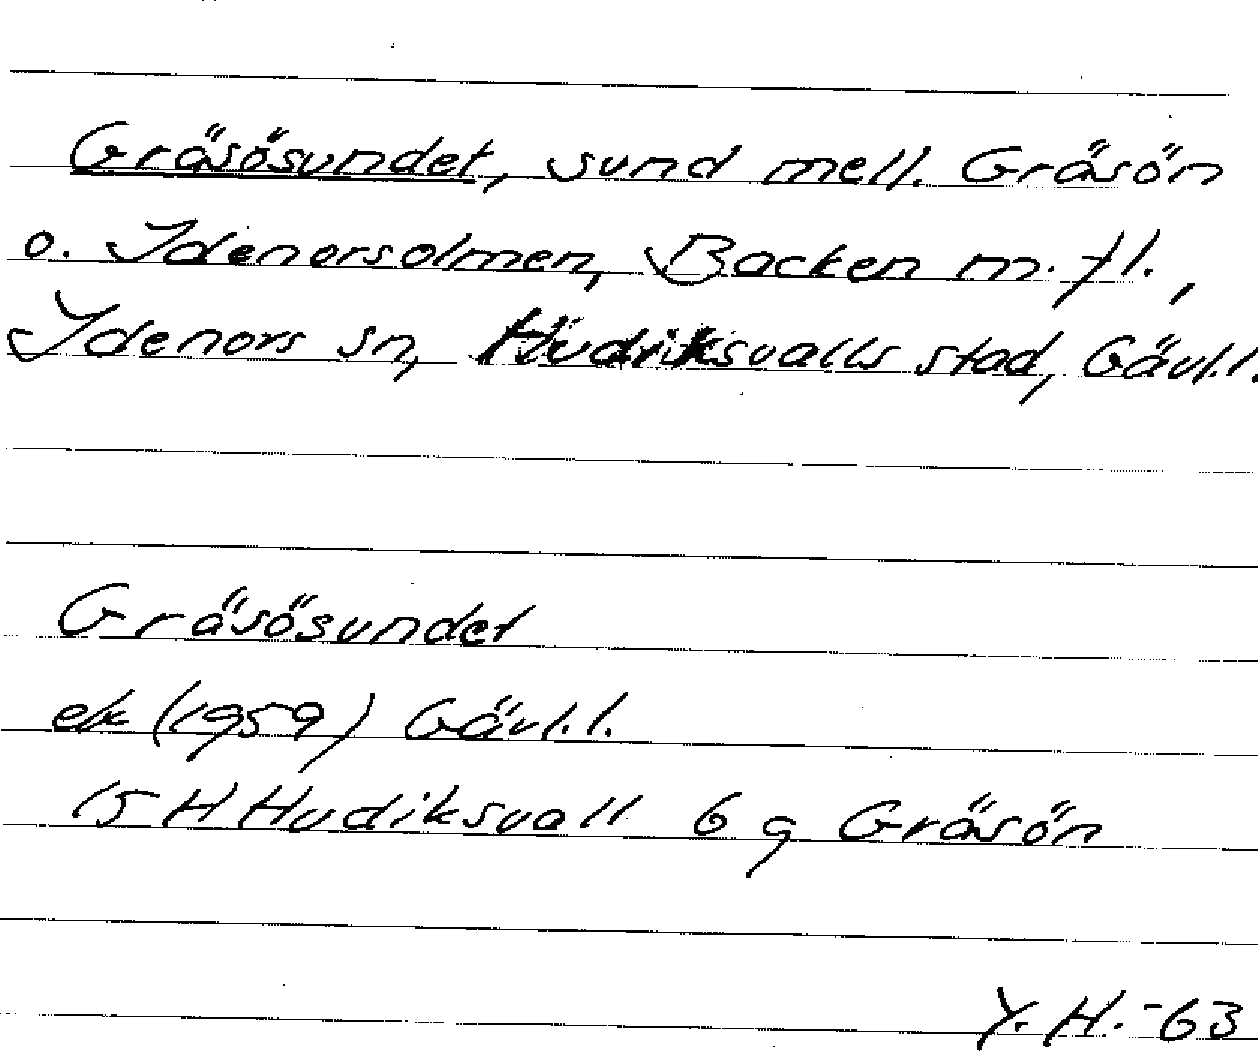 Gräsösundet, sund mell. Gräsön
o. Idenorsolmen, Backen m. fl.,
Idenors sn, Hudiksvalls stad, Gävl.l.
Gräsösundet
ek (1959) Gävl.l.
15 H Hudiksvall 6 g Gräsön
Y. H. -63